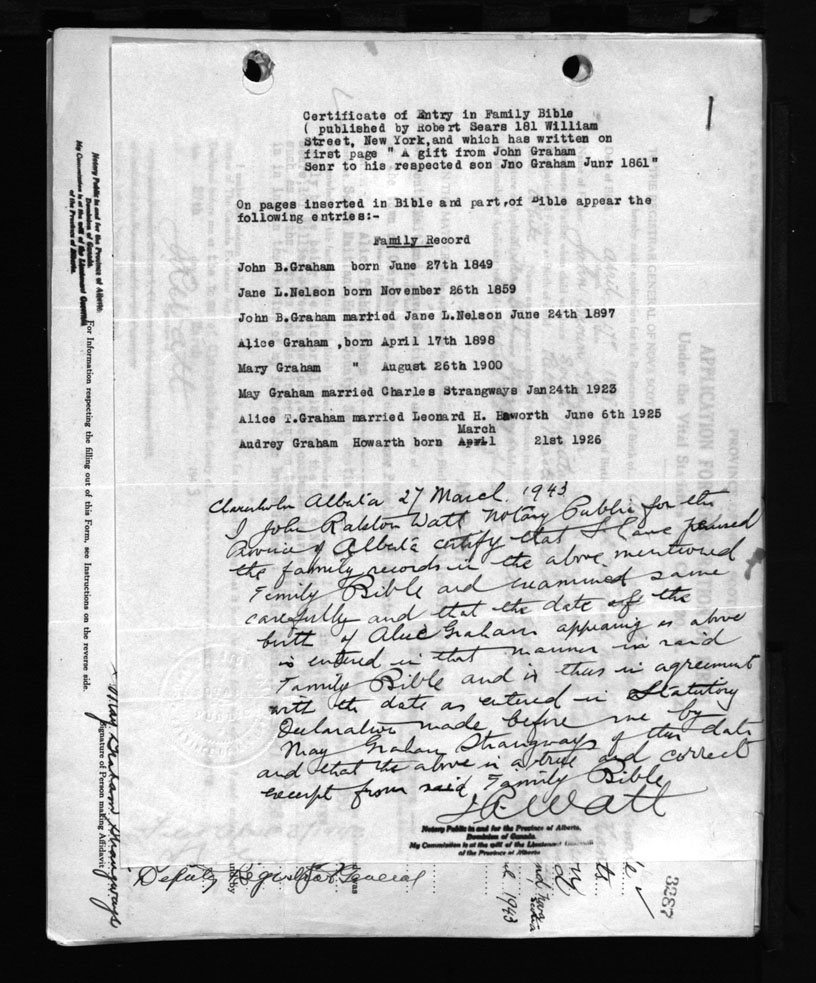 Certificate of Entry in Family Bible
( published by Robert Sears 181 William
Street, New York,and which has written on
first page " A gift from John Graham
Senr to his respected son Jno Graham Junr 1861"
On pages inserted in Bible and part of Bible appear the
following entries:-
Family Record
John B.Graham born June 27th 1849
Jane L.Nelson born November 26th 1859
John B.Graham married Jane L.Nelson June 24th 1897
Alice Graham ,born April 17th 1898
Mary Graham " August 26th 1900
May Graham married Charles Strangways Jan24th 1923
Alice T.Graham married Leonard H. Haworth June 6th 1925
March
Audrey Graham Howarth born April 21st 1926
Claresholm Alberta 27 March. 1943
I John Ralston Watt Notary Public for the
Province of Alberta certify that I have perused
the family records in the above mentioned
Family Bible and examined same
carefully and that the date of the
birth of Alice Graham appearing as above
is entered in that manner in said
Family Bible and is thus in agreement
with the date as entered in Statutory
Declaration made before me by
May Graham Strangways of this date
and that the above is a true and correct
excerpt from said Family Bible
Watt
Notary Public in and for the Province of Alberta.
Dominion of Canada.
My Commission is at the will of the Lieutenant Governor
of the Province of Alberta
Deputy Registrar General
3287
1943
Notary Public in and for the Province of Alberta.
Dominion of Canada.
My Commission is at the will of the Lieutenant Governor
of the Province of Alberta.
For Information respecting the filling out of this Form, see Instructions on the reverse side.
May Graham Strangways
Signature of Person making Affidavit